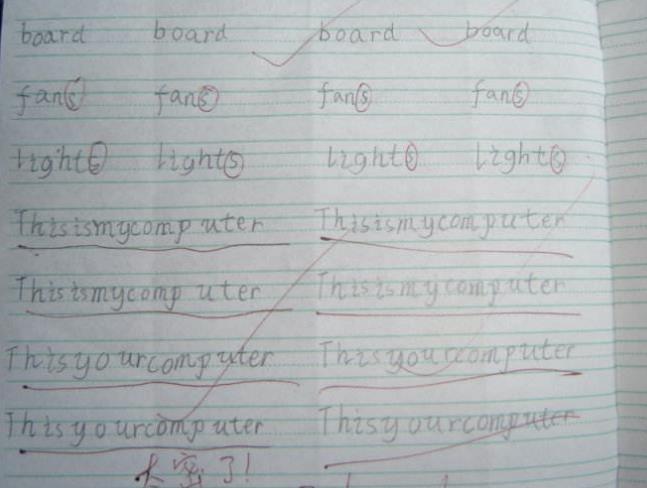 board board board board
fans fans fans fans
lights lights lights lights
Thisismycomp uter Thisismycomputer
Thisismycomp uter Thisismycomputer
Thisyourcomputer Thisyourcomputer
Thisyourcomputer Thisyourcomputer
太密了!